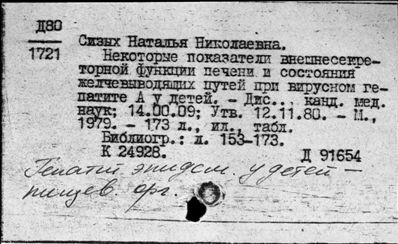 Д80
1721
Сизых Наталья Николаевна.
Некоторые показатели внешнесекре-
торной функции печени и состояния
желчевыводящих путей при вирусном ге-
патите А у детей. - Дис... канд. мед.
наук; 14.00.09; Утв. 12.11.80. - М.,
1979. - 173 л., ил., табл.
Библиогр.: л. 153-173.
К 24928. Д 91654
Гепатит эпидем. у детей -
пищев. орг.